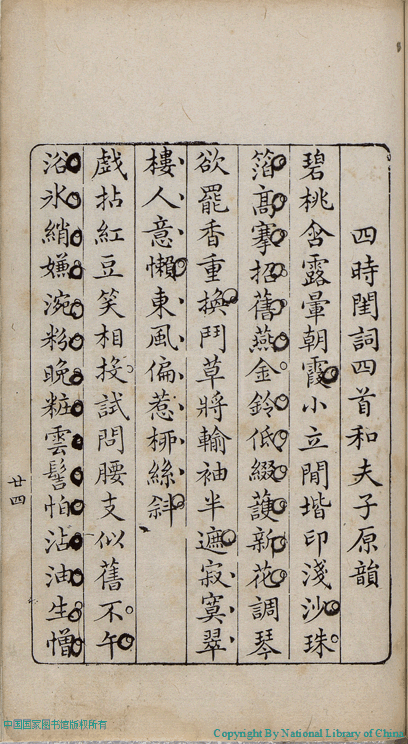 四時閨詞四首和夫子原韻
碧桃含露暈朝霞小立閒堦印淺沙珠
箔高搴招舊燕金鈴低綴護新花調琴
欲罷香重換鬥草將輸袖半遮寂寞翠
樓人意懶東風偏惹柳絲斜
戲拈紅豆笑相投試問腰支似舊不午
浴氷綃嫌涴粉晚粧雲髻怕沾油生憎
廿四
中国国家图书馆版权所有
Copyright By National Library of China